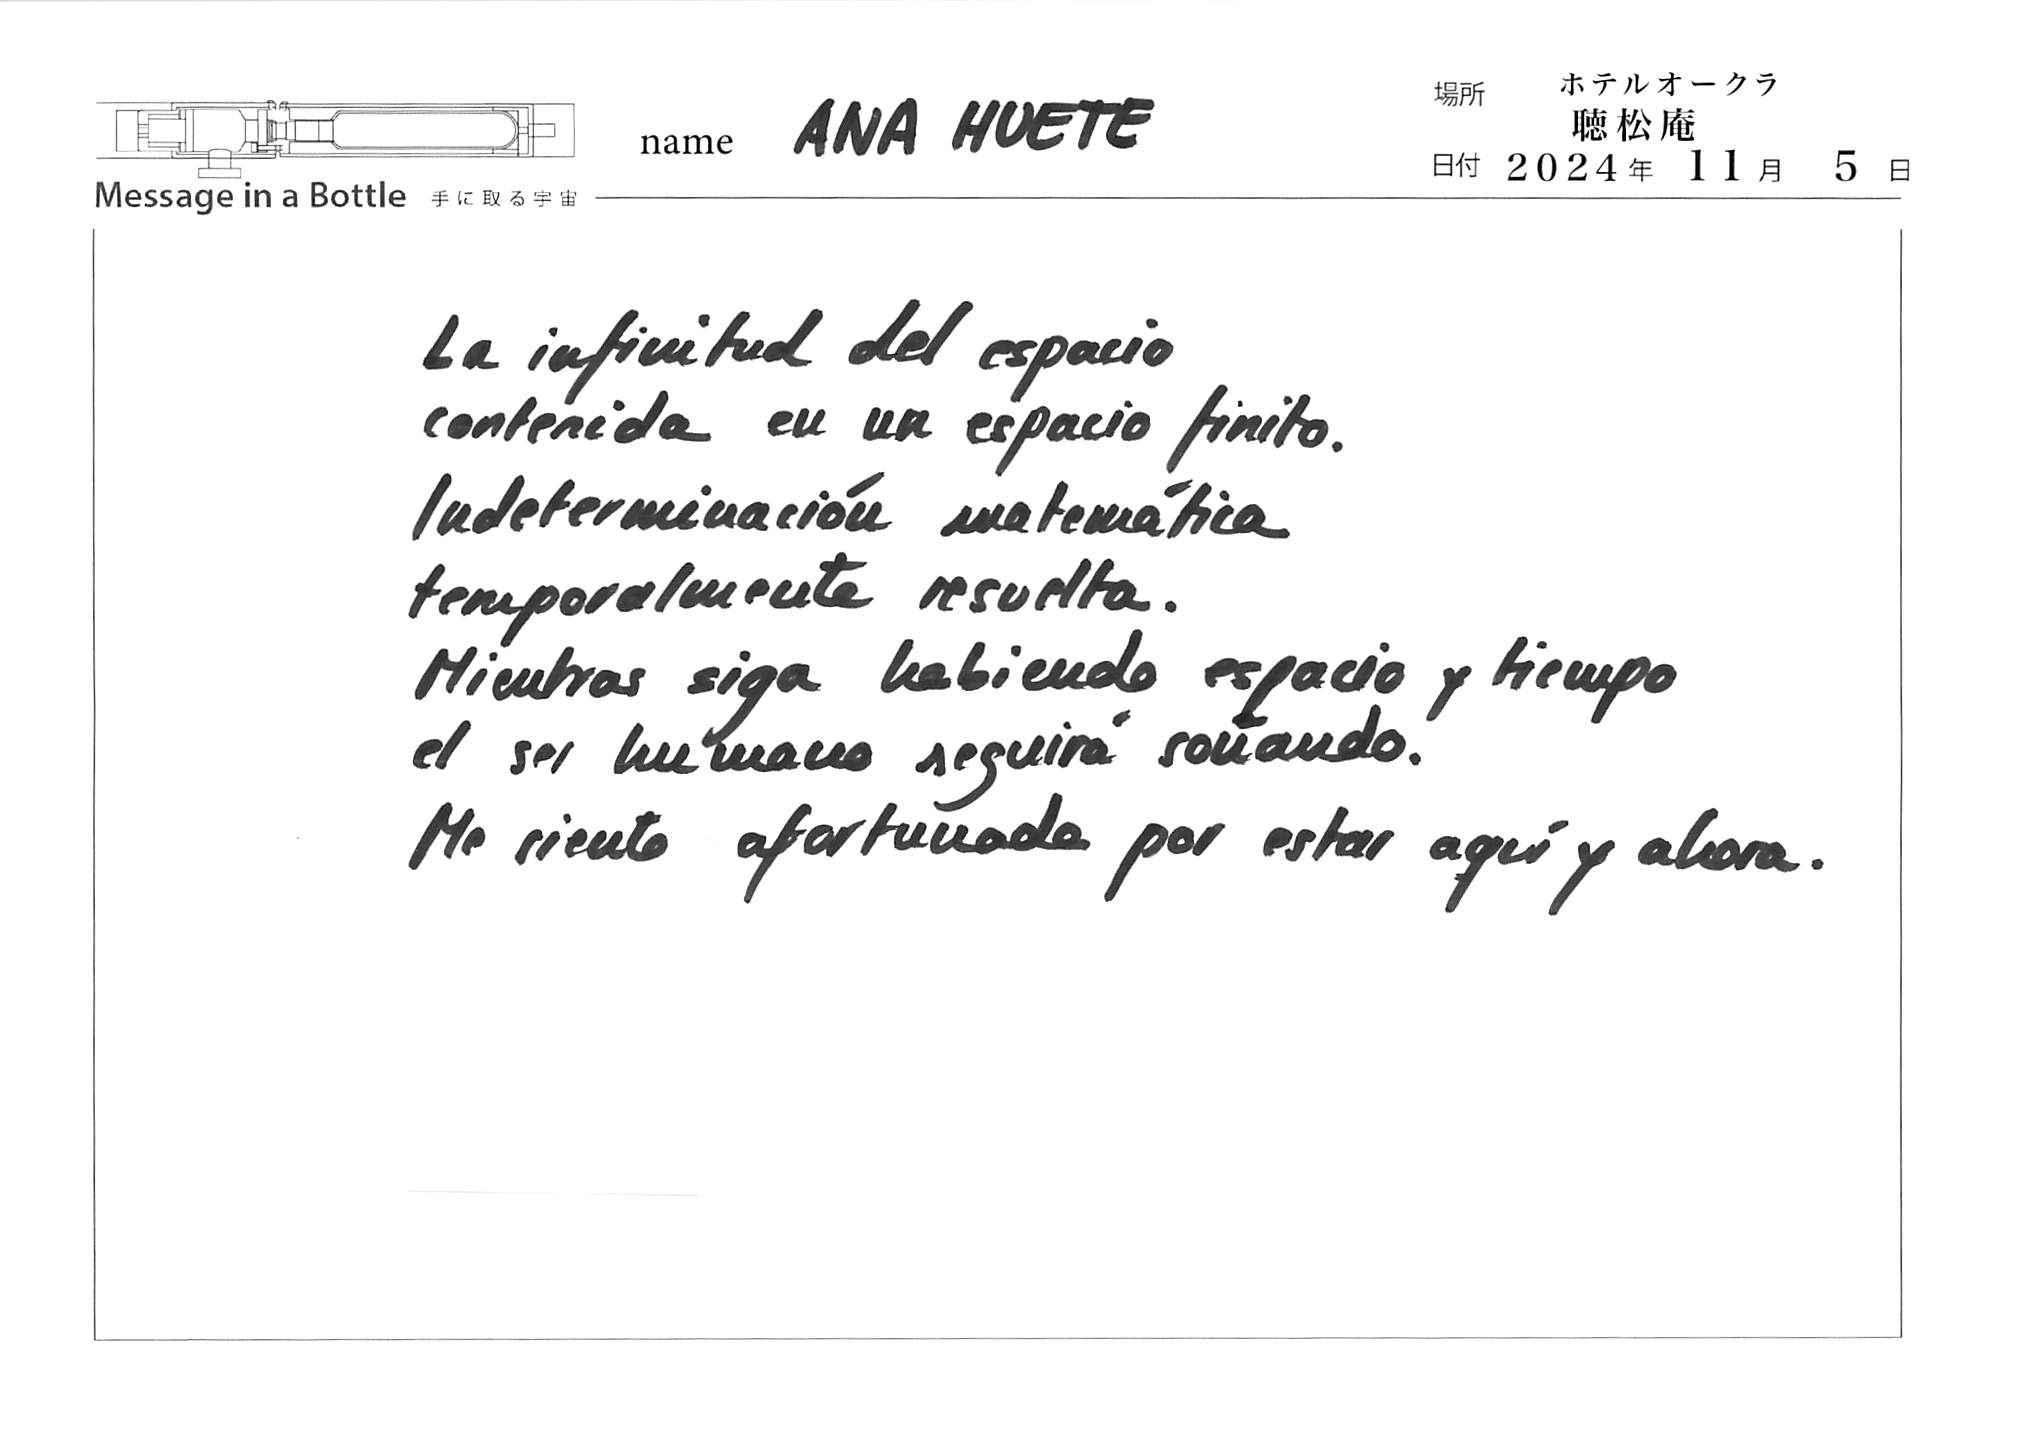 name ANA HUETE
場所 ホテルオークラ
聴松庵
日付 2024年 11月 5日
Message in a Bottle 手に取る宇宙
La infinitud del espacio
contenida en un espacio finito.
Indeterminación matemática
temporalmente resuelta.
Mientras siga habiendo espacio y tiempo
el ser humano seguirá soñando.
Me siento afortunada por estar aquí y ahora.